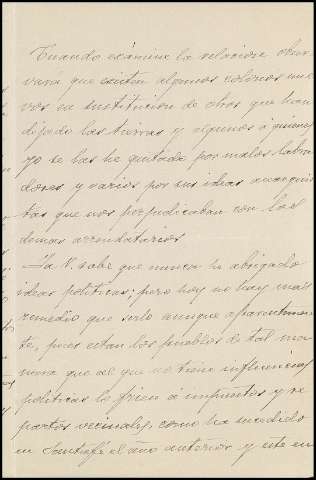 Cuando examine la relacion obser
vará que existen algunos colonos nue
vos en sustitucion de otros que han
dejado las tierras y algunos á quienes
yo se las he quitado por malos labra
dores y varios por sus ideas anarquis
tas que nos perjudicaban con los
demas arrendatarios.
Ya V. sabe que nunca he abrigado
ideas politicas; pero hoy no hay mas
remedio que serlo aunque aparentemen
te, pues estan los pueblos de tal ma
nera que al que no tiene influencias
politicas lo frien á impuestos y re
partos vecinales, como ha sucedido
en Santafé el año anterior y este en